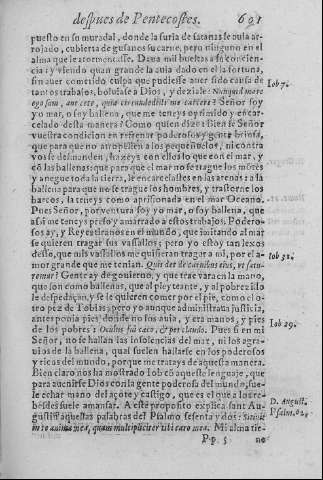 despues de Pentecostes. 691
puesto en su muradal, donde la furia de satanas le auia ar-
rojado, cubierta de gusanos su carne, pero ninguno en el
alma que le atormentasse. Daua mil bueltas a su conscien-
cia: y viendo quan grande le auia dado en el la fortuna,
sin auer cometido culpa que pudiesse auer sido causa de
tantos trabajos, boluiase a Dios, y deziale: Nunquid mare Iob 7.
ego sum, aut cete, quia circundedisti me carcere? Señor soy
yo mar, o soy ballena, que me teneys oprimido y encar-
celado desta manera? Como quien dize: Bien se Señor
vuestra condicion en refrenar poderosos y gente briosa,
que para que no atropellen a los pequeñuelos, ni contra
vos se desmanden, hazeys con ellos lo que con el mar, y
cõ las ballenas: que para que el mar no se trague los mõtes
y anegue toda la tierra, le encarcelastes en las arenas: a la
ballena para que no se trague los hombres, y trastorne los
barcos, la teneys como aprisionada en el mar Oceano.
Pues Señor, por ventura soy yo mar, o soy ballena, que
assi me teneys preso y amarrado a estos trabajos. Podero-
so say, y Rey estiranos en el mundo, que imitando al mar
se quieren tragar sus vassallos; pero yo estoy tan lexos
desso, que mis vassallos me quisieran tragar a mi, por el a-
mor grande que me tenian. Quis det de carnibus eius, vt satu- Iob 31.
remur? Gente ay de gouierno, y que trae vara en la mano,
que son como ballenas, que al pleyteante, y al pobrezillo
le despedaçan, y se le quieren comer por el pie, como el o-
tro pez de Tobias; pero yo aunque administraua justicia,
antes ponia pies donde no los auia, y era manos, y pies
de los pobres: Oculus fui cæco, & pes claudo. Pues si en mi Iob 29.
Señor, no se hallan las insolencias del mar, ni los agra-
uios de la ballena, qual suelen hallarse en los poderosos
y ricas del mundo, porque me tratays de aquessa manera.
Bien claro nos ha mostrado Iob cõ aqueste lenguaje, que
para auenirse Dios con la gente poderosa del mundo, sue-
le echar mano del açote y castigo, que es el que a los re-
beldes suele amansar. A este proposito explica sant Au- D. August.
gustin aquestas palabras del Psalmo sesenta y dos: Sitiuit Psalm. 62.
in te anima mea, quam multipliciter tibi caro mea. Mi alma tie-
Pp 5 ne